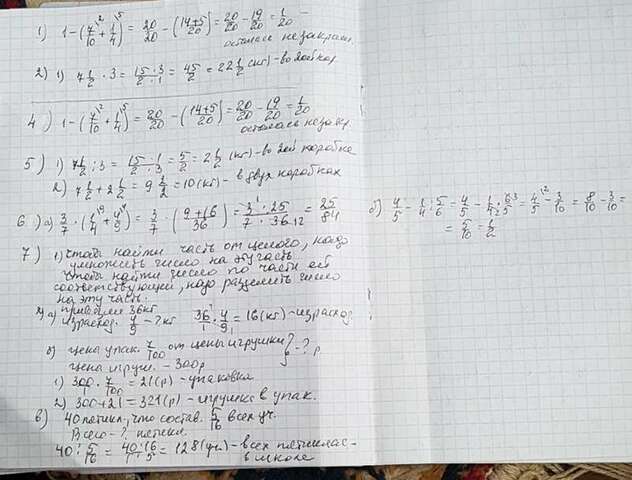 1) 1-(7/10 + 1/4) = 20/20 - (14+5/20) = 20/20 - 19/20 = 1/20 -
осталась незакраш.
2) 1) 7 1/2 · 3 = 15·3/2·1 = 45/2 = 22 1/2 (кг) - во 2ой кор.
4) 1-(7/10 + 1/4) = 20/20 - (14+5/20) = 20/20 - 19/20 = 1/20
осталась незакр.
5) 1) 7 1/2 : 3 = 15·1/2·3 = 5/2 = 2 1/2 (кг) - во 2ой коробке
2) 7 1/2 + 2 1/2 = 9 2/2 = 10 (кг) - в двух коробках
6) а) 3/7 · (1/4 + 4/9) = 3/7 · (9+16/36) = 3·25/7·36 = 25/84
б) 4/5 - 1/4 : 5/6 = 4/5 - 1/4 · 6/5 = 4/5 - 3/10 = 8/10 - 3/10 =
= 5/10 = 1/2
7) 1) чтобы найти часть от целого, надо
умножить число на эту часть.
Чтобы найти число по части ей
соответствующей, надо разделить число
на эту часть.
2) а) привезли 36 кг
израсход. 4/9 - ? кг 36/1 · 4/9 = 16 (кг) - израсход.
б) цена упак. 7/100 от цены игрушки ? } - ? р
цена игруш. - 300р
1) 300 · 7/100 = 21 (р) - упаковка
2) 300+21 = 321 (р) - игрушка в упак.
в) 40 пятикл., что состав. 5/16 всех уч.
Всего - ?
40 : 5/16 = 40·16/1·5 = 128 (уч.) - всех пятиклас-
в школе